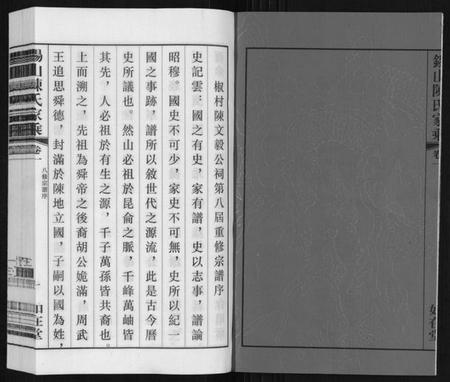 錫山陳氏家乘 卷一
如在堂
椒村陳文毅公祠第八屆重修宗譜序
史記雲三國之有史,家有譜,史以志事,譜論
昭穆。國史不可少,家史不可無,史所以紀一
國之事跡,譜所以敘世代之源流,此是古今曆
史所議也。然山必祖於昆侖之脈,千峰萬岫皆
其先,人必祖於有生之源,千子萬孫皆共裔也。
上而溯之,先祖為舜帝之後裔胡公媯滿,周武
王追思舜德,封滿於陳地立國,子嗣以國為姓,
錫山陳氏家乘 卷一
八修宗譜序
一
如在堂